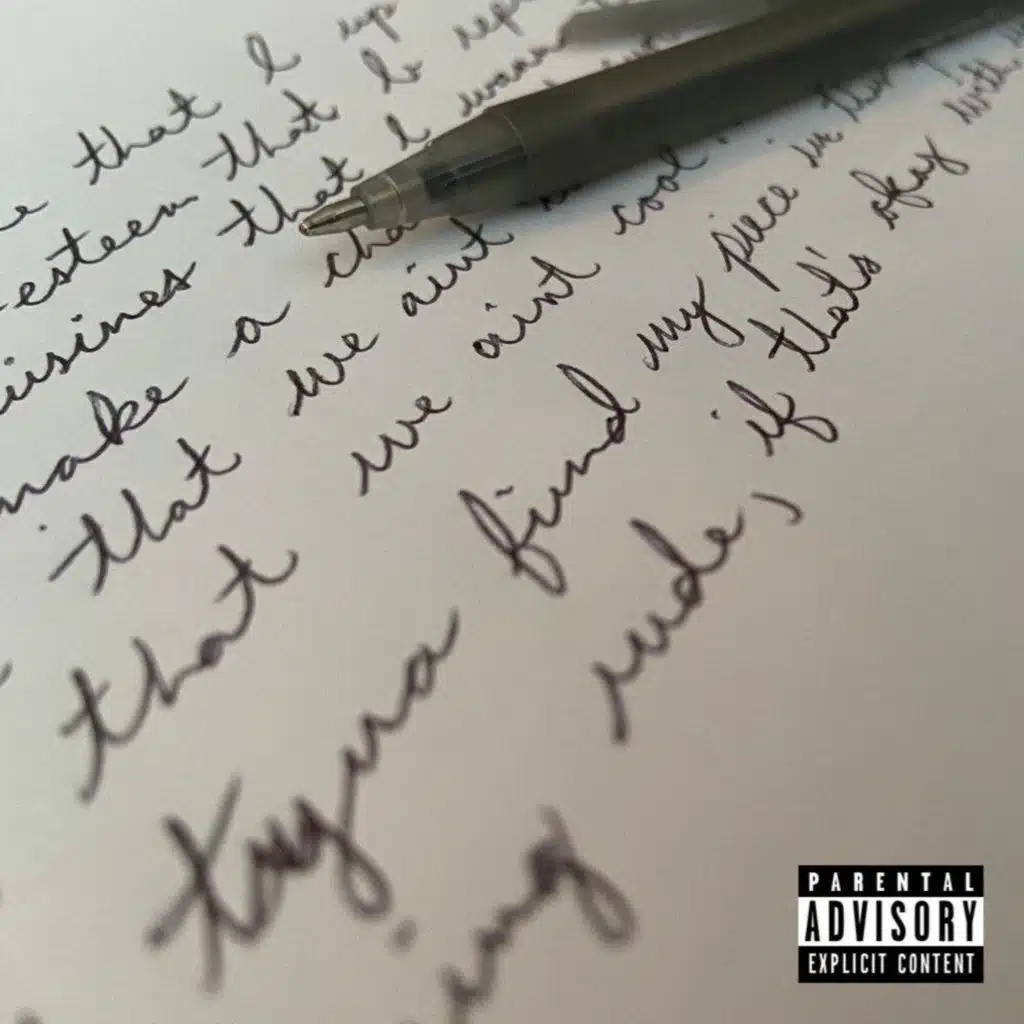 that I
esteem that I
that I
make a
that we aint
that we aint cool
tryna find my piece in
ing rude, if that's okay with
PARENTAL
ADVISORY
EXPLICIT CONTENT